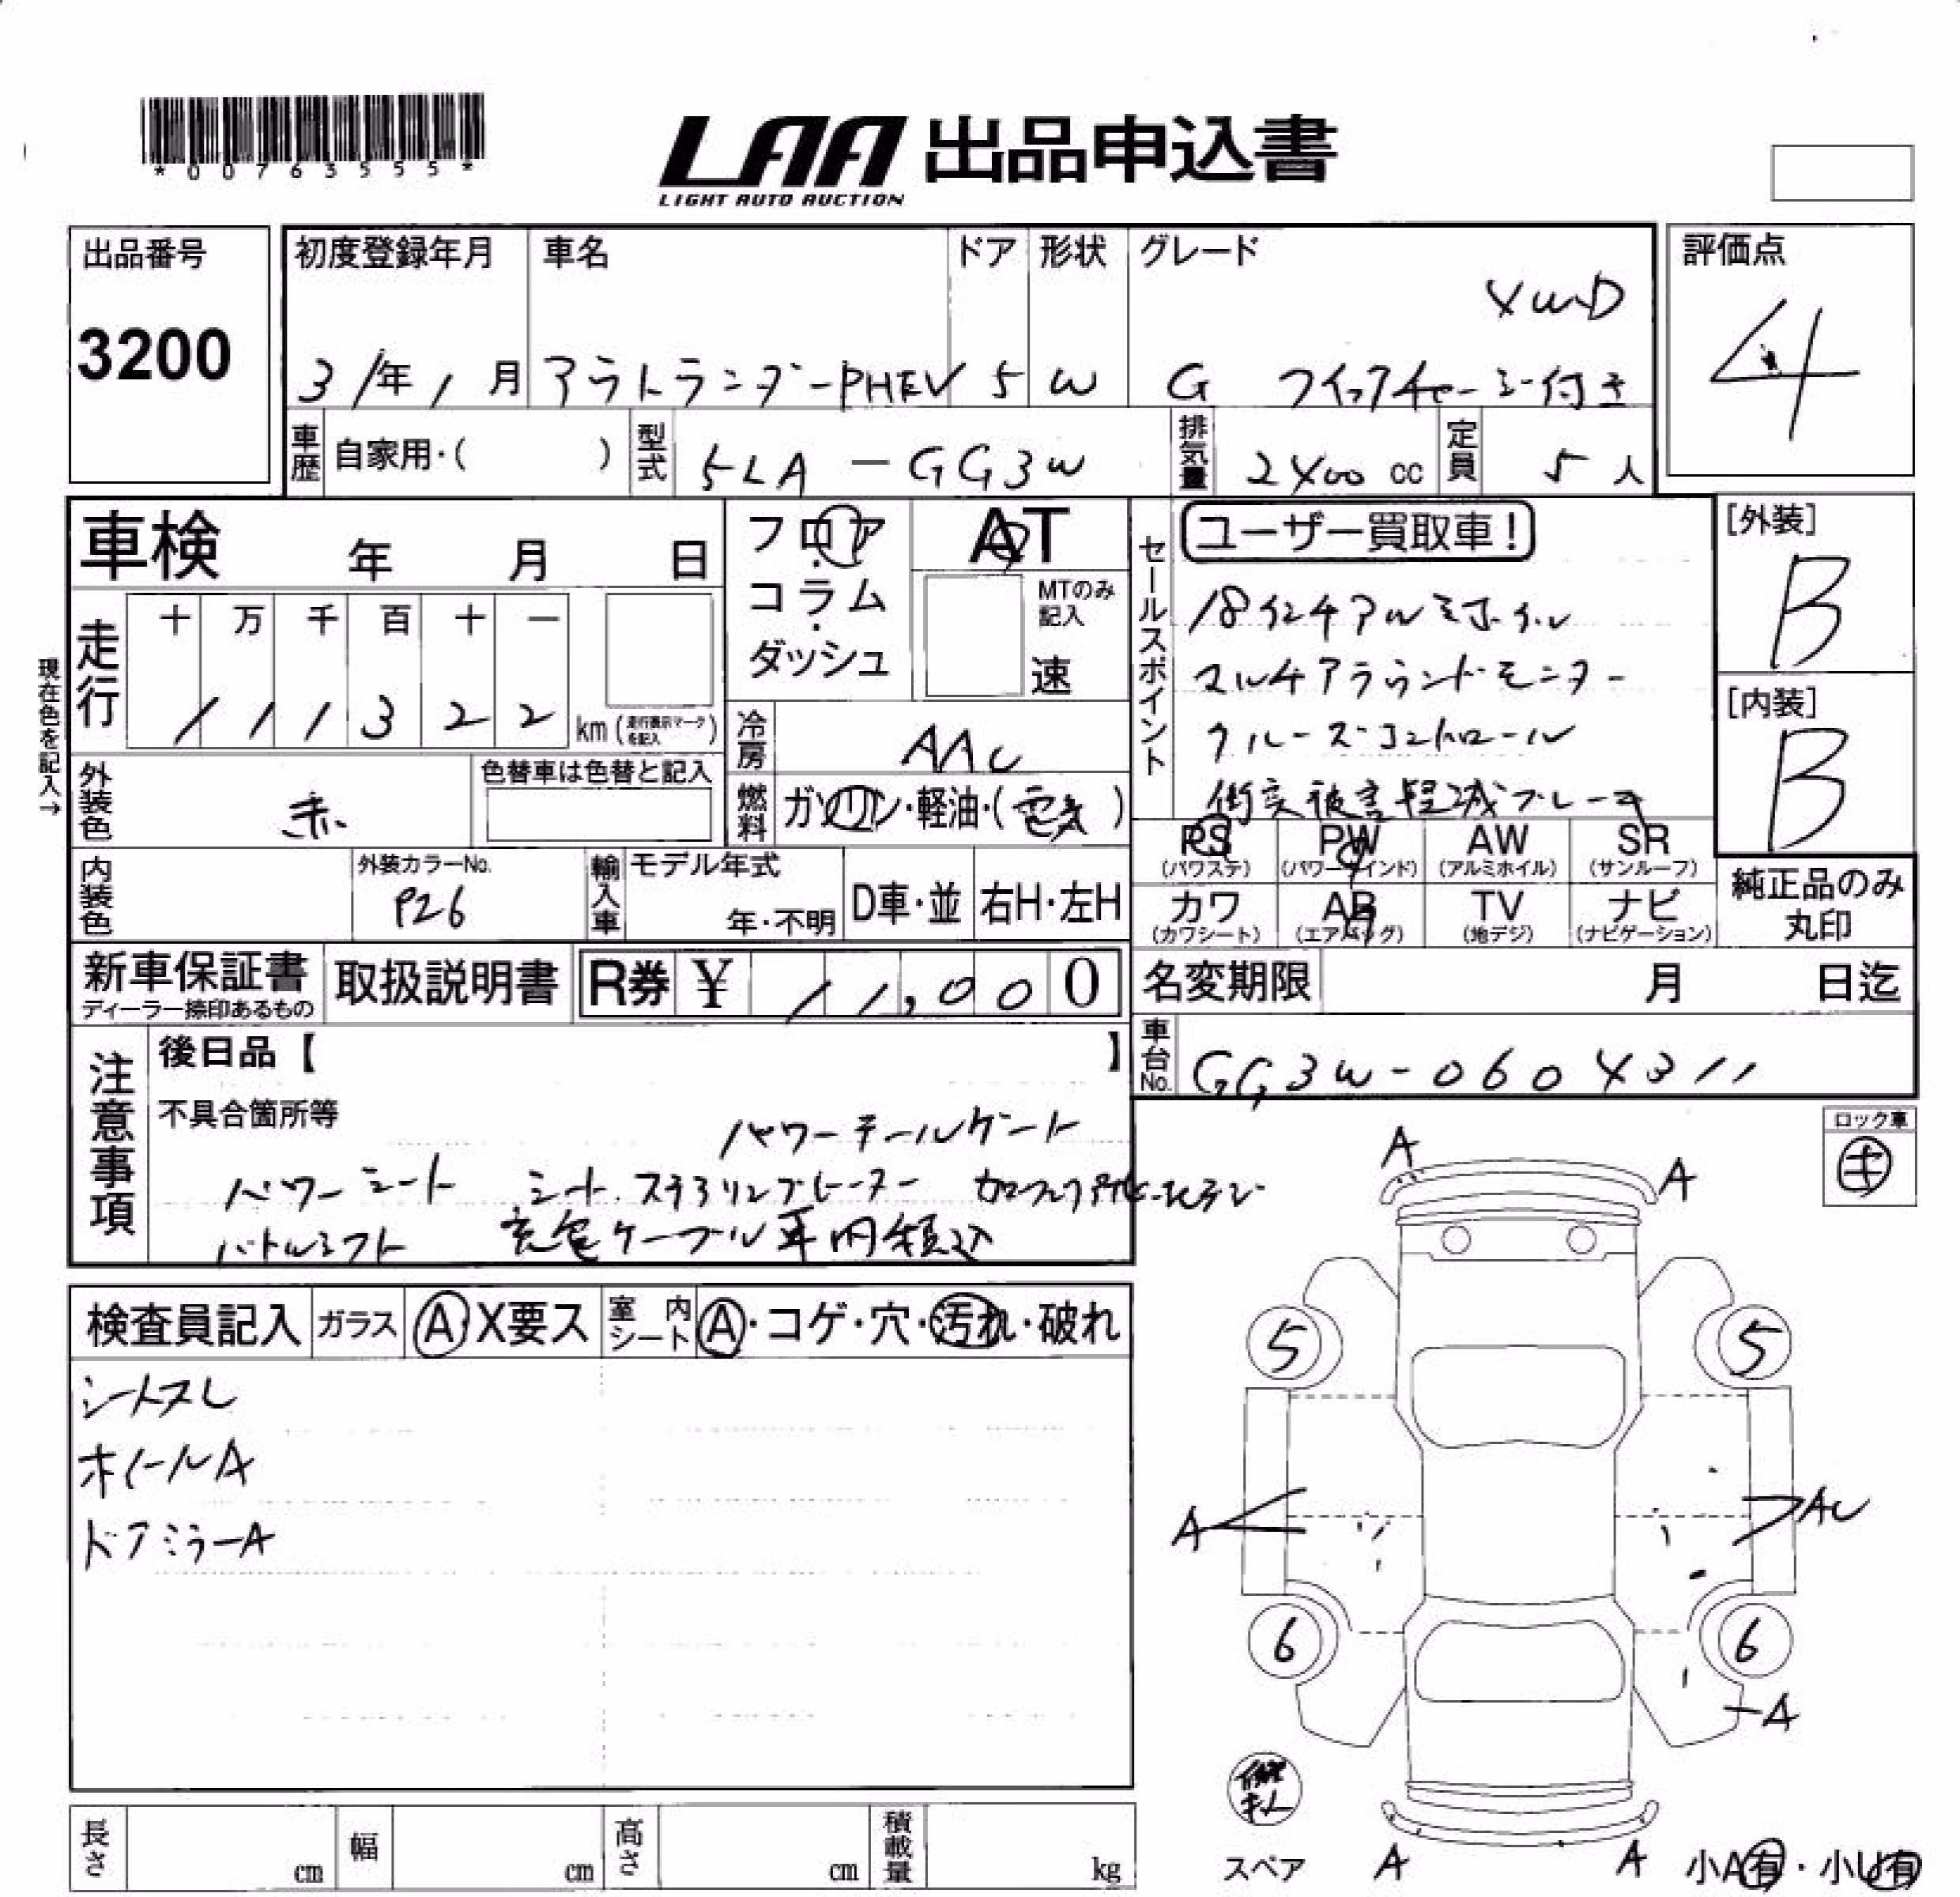 *00763555*
LAA 出品申込書
LIGHT AUTO AUCTION
出品番号
3200
初度登録年月 車名 ドア 形状 グレード
4WD
31年1月 アウトランダーPHEV 5 W G クイックチャージャー付き
評価点
4
車歴 自家用・( ) 型式 5LA-GG3W 排気量 2400cc 定員 5人
車検 年 月 日
フロア・コラム・ダッシュ
AT
MTのみ記入
速
走行
十 万 千 百 十 一
1 1 1 3 2 2 km (走行表示マークを記入)
現在色を記入→
冷房 AAC
外装色 赤
色替車は色替と記入
燃料 ガソリン・軽油・(電気)
内装色
外装カラーNo.
P26
輸入車 モデル年式
年・不明
D車・並
右H・左H
セールスポイント
ユーザー買取車!
18インチアルミホイル
マルチアラウンドモニター
クルーズコントロール
衝突被害軽減ブレーキ
[外装]
B
[内装]
B
PS (パワステ) PW (パワーウインド) AW (アルミホイル) SR (サンルーフ)
カワ (カワシート) AB (エアバッグ) TV (地デジ) ナビ (ナビゲーション)
純正品のみ丸印
新車保証書
ディーラー捺印あるもの
取扱説明書
R券 ¥ 11,000
名変期限 月 日迄
車台No. GG3W-0604311
注意事項
後日品【 】
不具合箇所等
パワーテールゲート
パワーシート シート、ステアリングヒーター
パドルシフト 充電ケーブル車内積込
ロック車
検査員記入 ガラス A X要ス 室内シート A・コゲ・穴・汚れ・破れ
シートスレ
ホイールA
ドアミラーA
A A
5 5
A AU
6 6
A
スペア
A A
小A有・小U有
長さ cm 幅 cm 高さ cm 積載量 kg